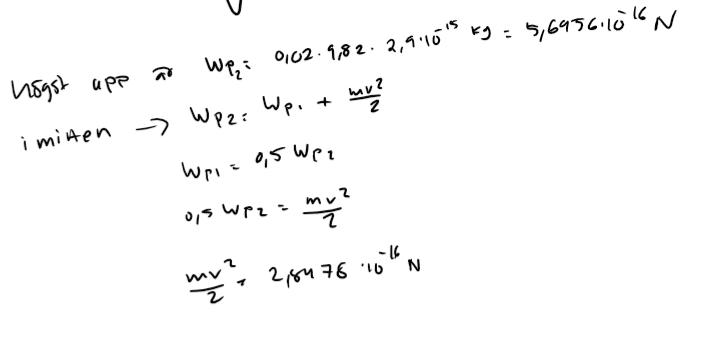 högst upp är Wp₂ = 0,02 · 9,82 · 2,9·10⁻¹⁵ kg = 5,6956·10⁻¹⁶ N
i mitten → Wp₂ = Wp₁ + mv²/2
Wp₁ = 0,5 Wp₂
0,5 Wp₂ = mv²/2
mv²/2 = 2,8478 · 10⁻¹⁶ N